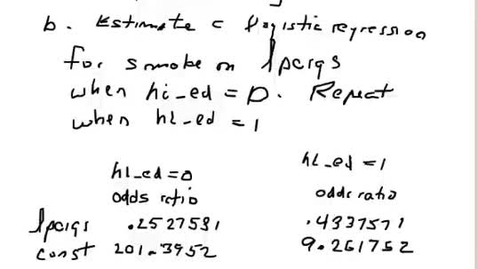 b. Estimate a logistic regression
for smoke on lpcigs
when hi_ed = 0. Repeat
when hi_ed = 1
hi_ed = 0 hi_ed = 1
odds ratio odds ratio
lpcigs .2527531 .4337571
const 201.3952 9.261752